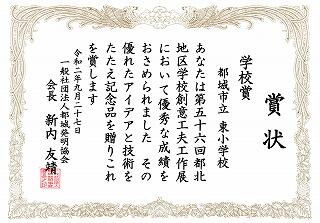 賞状
学校賞
都城市立 東小学校
あなたは第五十六回都北
地区学校創意工夫工作展
において優秀な成績を
おさめられました その
優れたアイデアと技術を
たたえ記念品を贈りこれ
を賞します
令和二年九月二十七日
一般社団法人都城発明協会
会長 新内 友靖